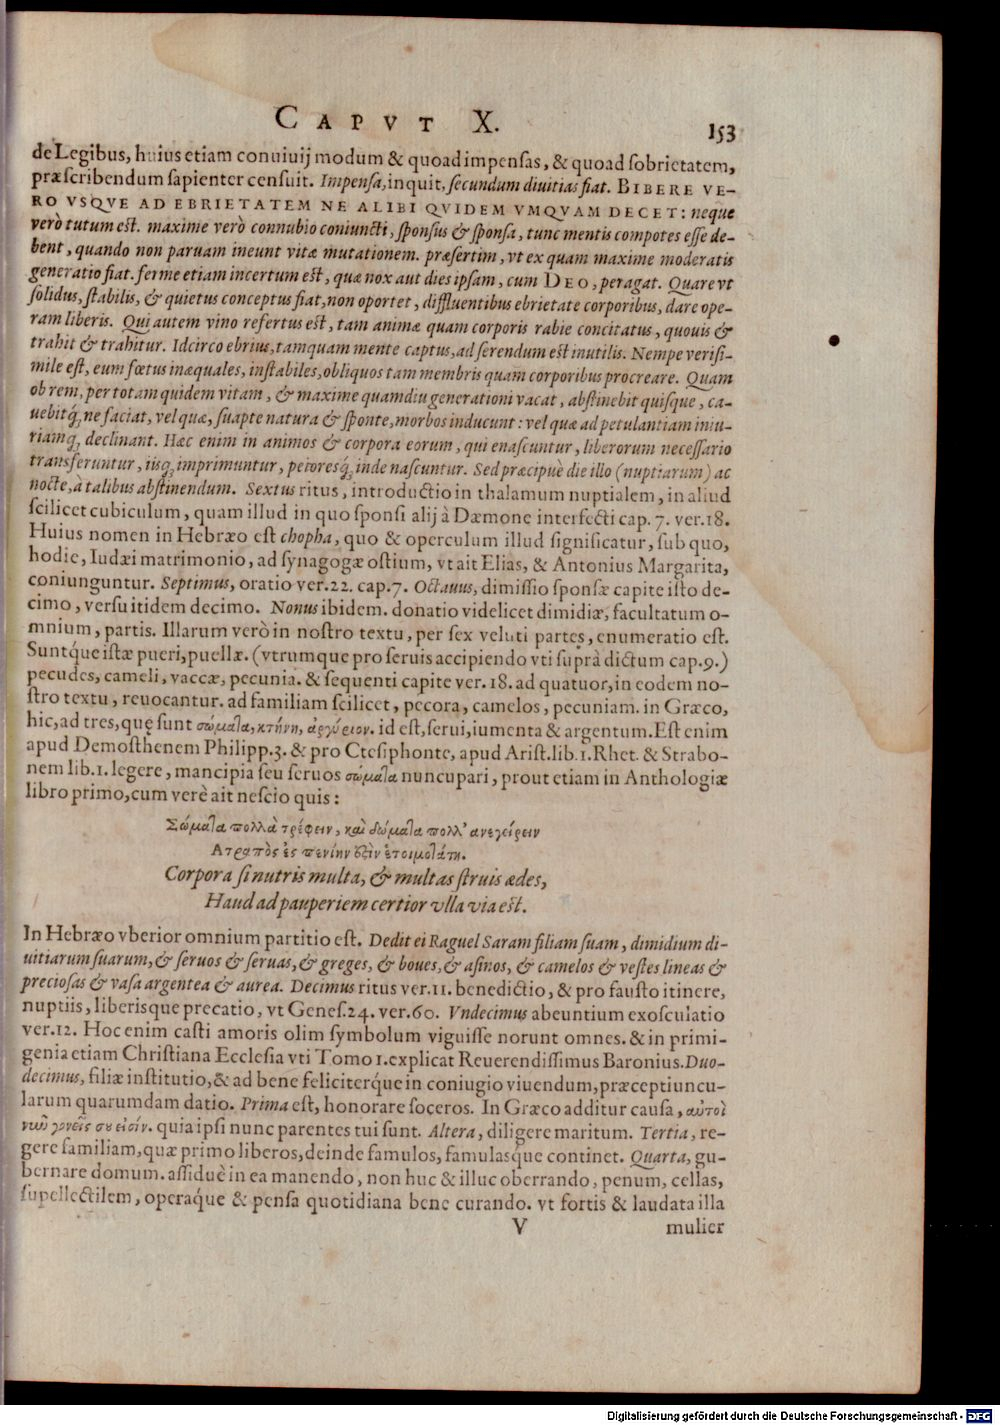 CAPVT X.
153
de Legibus, huius etiam conuiuij modum & quoad impensas, & quoad sobrietatem,
præscribendum sapienter censuit. Impensa, inquit, secundum diuitias fiat. BIBERE VE-
RO VSQVE AD EBRIETATEM NE ALIBI QVIDEM VMQVAM DECET: neque
verò tutum est. maxime verò connubio coniuncti, sponsus & sponsa, tunc mentis compotes esse de-
bent, quando non paruam ineunt vitæ mutationem. præsertim, vt ex quam maxime moderatis
generatio fiat. ferme etiam incertum est, quæ nox aut dies ipsam, cum DEO, peragat. Quare vt
solidus, stabilis, & quietus conceptus fiat, non oportet, diffluentibus ebrietate corporibus, dare ope-
ram liberis. Qui autem vino refertus est, tam animæ quam corporis rabie concitatus, quouis &
trahit & trahitur. Idcirco ebrius, tamquam mente captus, ad serendum est inutilis. Nempe verisi-
mile est, eum fœtus inæquales, instabiles, obliquos tam membris quam corporibus procreare. Quam
ob rem, per totam quidem vitam, & maxime quamdiu generationi vacat, abstinebit quisque, ca-
uebitq́; ne faciat, vel quæ, suapte natura & sponte, morbos inducunt: vel quæ ad petulantiam iniu-
riamq́; declinant. Hæc enim in animos & corpora eorum, qui enascuntur, liberorum necessario
transferuntur, iisq́; imprimuntur, peioresq́; inde nascuntur. Sed præcipuè die illo (nuptiarum) ac
nocte, à talibus abstinendum. Sextus ritus, introductio in thalamum nuptialem, in aliud
scilicet cubiculum, quam illud in quo sponsi alij à Dæmone interfecti cap. 7. ver. 18.
Huius nomen in Hebræo est chopha, quo & operculum illud significatur, sub quo,
hodie, Iudæi matrimonio, ad synagogæ ostium, vt ait Elias, & Antonius Margarita,
coniunguntur. Septimus, oratio ver. 22. cap. 7. Octauus, dimissio sponsæ capite isto de-
cimo, versu itidem decimo. Nonus ibidem. donatio videlicet dimidiæ, facultatum o-
mnium, partis. Illarum verò in nostro textu, per sex veluti partes, enumeratio est.
Suntq́ue istæ pueri, puellæ. (vtrumque pro seruis accipiendo vti suprà dictum cap. 9.)
pecudes, cameli, vaccæ, pecunia. & sequenti capite ver. 18. ad quatuor, in eodem no-
stro textu, reuocantur. ad familiam scilicet, pecora, camelos, pecuniam. in Græco,
hic, ad tres, quę sunt σώματα, κτήνη, ἀργύριον. id est, serui, iumenta & argentum. Est enim
apud Demosthenem Philipp. 3. & pro Ctesiphonte, apud Arist. lib. 1. Rhet. & Strabo-
nem lib. 1. legere, mancipia seu seruos σώματα nuncupari, prout etiam in Anthologiæ
libro primo, cum verè ait nescio quis:
Σώματα πολλὰ τρέφειν, καὶ δώματα πολλ' ανεγείρειν
Ατραπὸς ἐς πενίην ἐστὶν ἑτοιμοτάτη.
Corpora si nutris multa, & multas struis ædes,
Haud ad pauperiem certior vlla via est.
In Hebræo vberior omnium partitio est. Dedit ei Raguel Saram filiam suam, dimidium di-
uitiarum suarum, & seruos & seruas, & greges, & boues, & asinos, & camelos & vestes lineas &
preciosas & vasa argentea & aurea. Decimus ritus ver. 11. benedictio, & pro fausto itinere,
nuptiis, liberisque precatio, vt Genes. 24. ver. 60. Vndecimus abeuntium exosculatio
ver. 12. Hoc enim casti amoris olim symbolum viguisse norunt omnes. & in primi-
genia etiam Christiana Ecclesia vti Tomo 1. explicat Reuerendissimus Baronius. Duo-
decimus, filiæ institutio, & ad bene feliciterq́ue in coniugio viuendum, præceptiuncu-
larum quarumdam datio. Prima est, honorare soceros. In Græco additur causa, αὐτοὶ
νῦν γονεῖς σου εἰσίν. quia ipsi nunc parentes tui sunt. Altera, diligere maritum. Tertia, re-
gere familiam, quæ primo liberos, deinde famulos, famulasq́ue continet. Quarta, gu-
bernare domum. assiduè in ea manendo, non huc & illuc oberrando, penum, cellas,
supellectilem, operaq́ue & pensa quotidiana bene curando. vt fortis & laudata illa
V
mulier
Digitalisierung gefördert durch die Deutsche Forschungsgemeinschaft - DFG